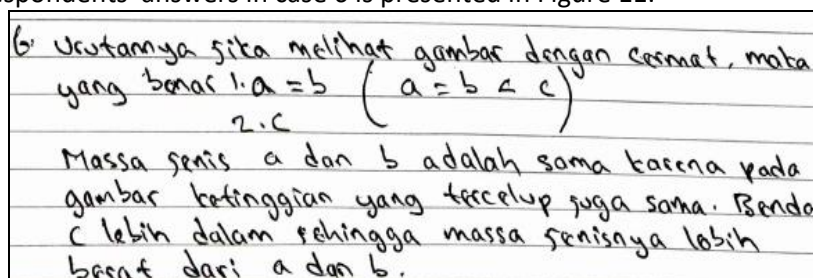 spondents' answers in case 6 is presented in Figure 11.
6. Urutannya jika melihat gambar dengan cermat, maka
yang benar 1. a = b ( a = b < c )
2. c
Massa jenis a dan b adalah sama karena pada
gambar ketinggian yang tercelup juga sama. Benda
c lebih dalam sehingga massa jenisnya lebih
besar dari a dan b.